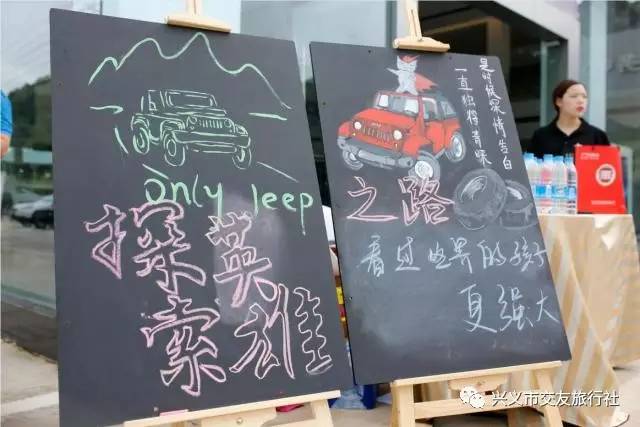 only Jeep
探索
英雄
是时候深情告白
一直独
之路
看过世界的孩子
更强大
兴义市交友旅行社